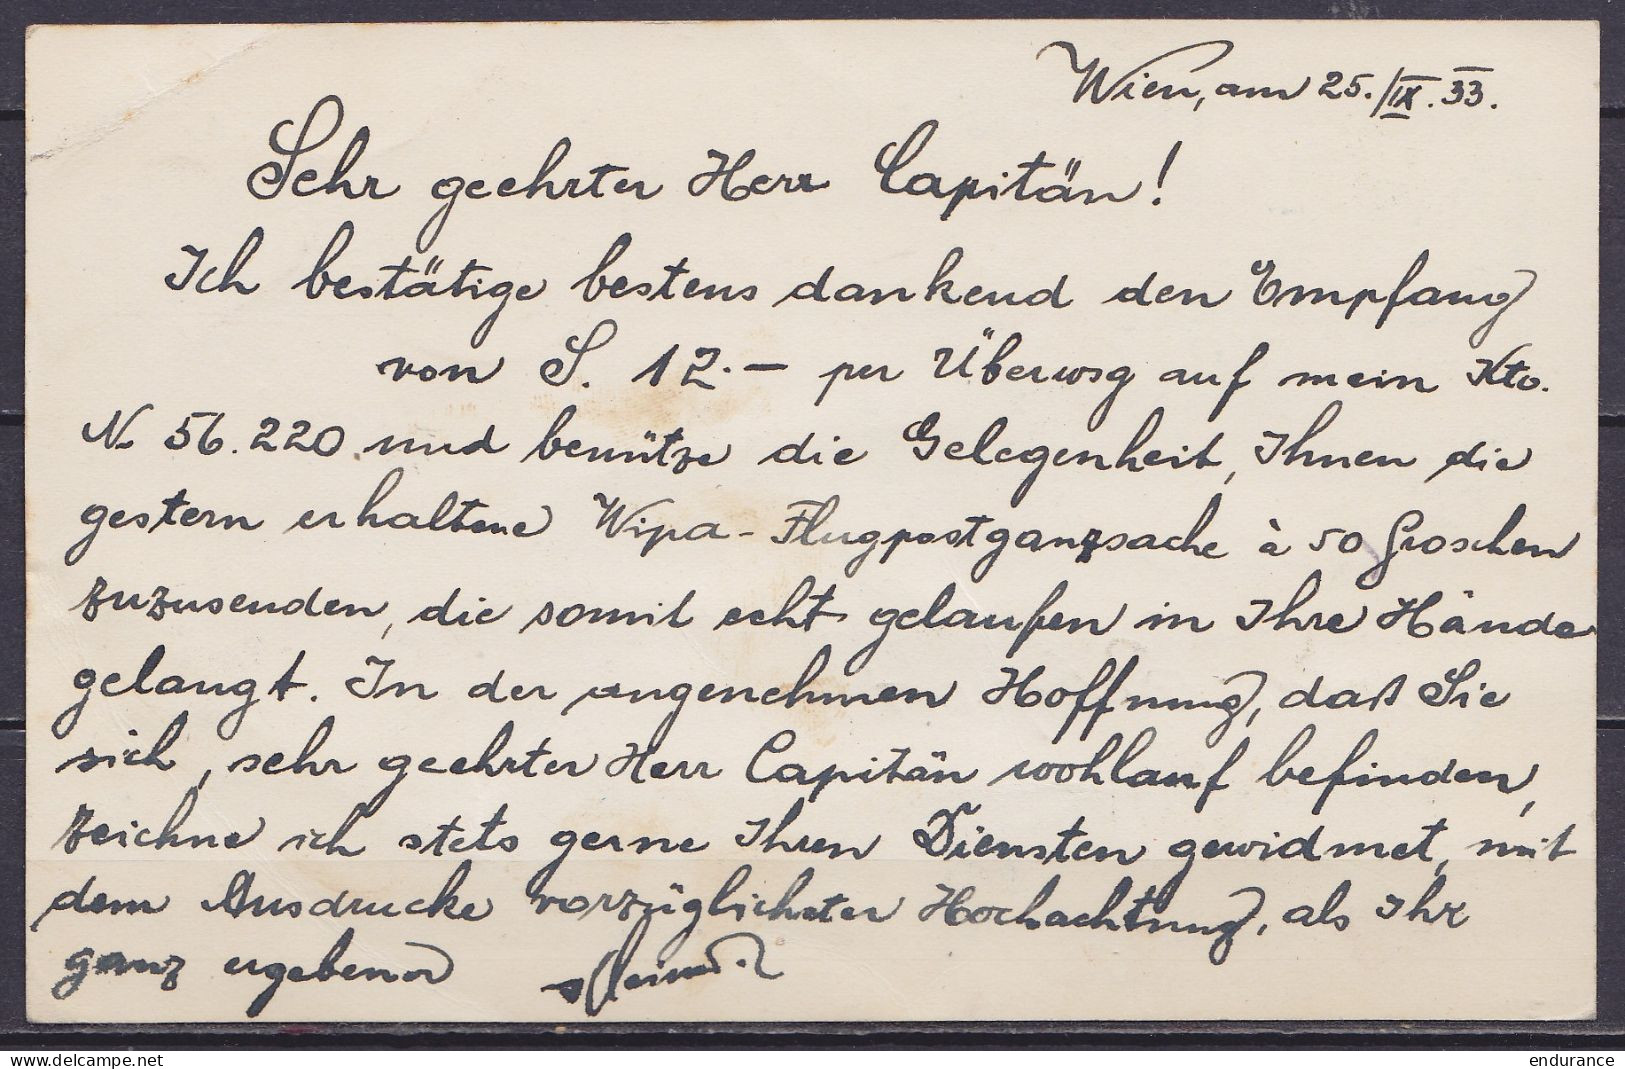 Wien, am 25./IX. 33.
Sehr geehrter Herr Capitän!
Ich bestätige bestens dankend den Empfang
von S. 12.— per Überwsg auf mein Kto.
N 56.220 und benütze die Gelegenheit, Ihnen die
gestern erhaltene Wipa-Flugpostganzsache à 50 Groschen
zuzusenden, die somit echt gelaufen in Ihre Hände
gelangt. In der angenehmen Hoffnung, daß Sie
sich, sehr geehrter Herr Capitän wohlauf befinden,
zeichne ich stets gerne Ihren Diensten gewidmet, mit
dem Ausdrucke vorzüglichster Hochachtung, als Ihr
ganz ergebener
WWW.DELCAMPE.NET
endurance